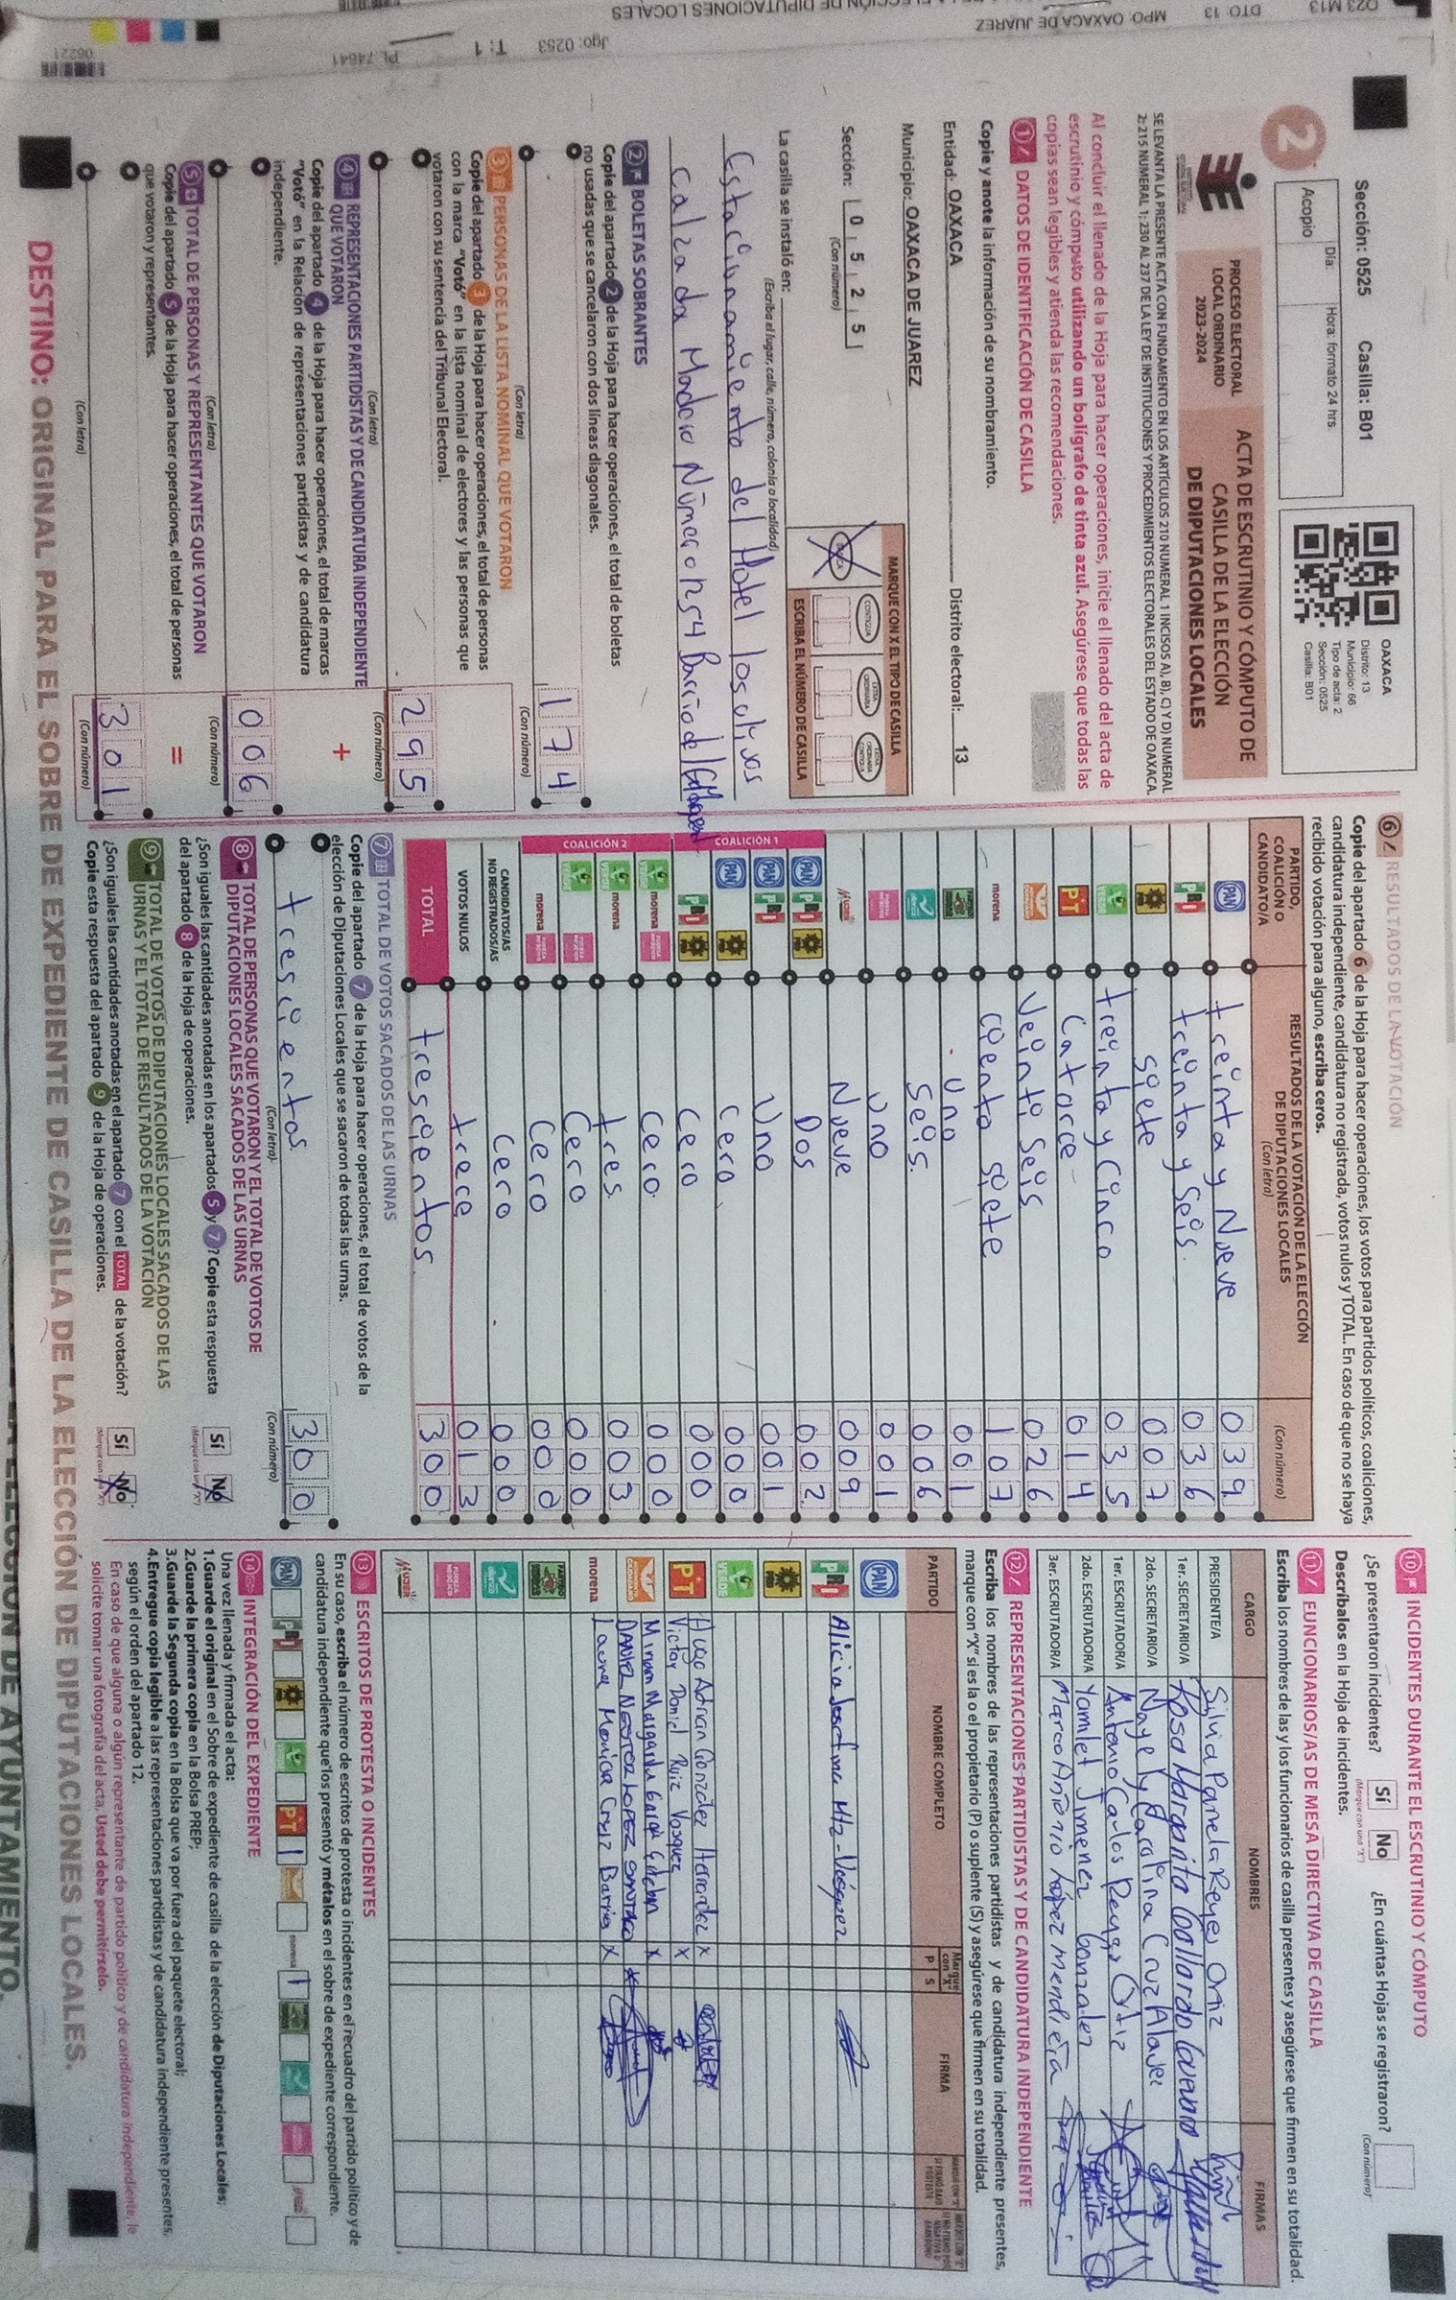 Sección: 0525 Casilla: B01
Día: Hora: formato 24 hrs
Acopio
OAXACA
Distrito: 13
Municipio: 66
Tipo de acta: 2
Sección: 0525
Casilla: B01
2
PROCESO ELECTORAL
LOCAL ORDINARIO
2023-2024
ACTA DE ESCRUTINIO Y CÓMPUTO DE
CASILLA DE LA ELECCIÓN
DE DIPUTACIONES LOCALES
SE LEVANTA LA PRESENTE ACTA CON FUNDAMENTO EN LOS ARTÍCULOS 210 NUMERAL 1 INCISOS A), B), C) Y D) NUMERAL
2; 215 NUMERAL 1; 230 AL 237 DE LA LEY DE INSTITUCIONES Y PROCEDIMIENTOS ELECTORALES DEL ESTADO DE OAXACA.
Al concluir el llenado de la Hoja para hacer operaciones, inicie el llenado del acta de
escrutinio y cómputo utilizando un bolígrafo de tinta azul. Asegúrese que todas las
copias sean legibles y atienda las recomendaciones.
1 DATOS DE IDENTIFICACIÓN DE CASILLA
Copie y anote la información de su nombramiento.
Entidad: OAXACA Distrito electoral: 13
Municipio: OAXACA DE JUAREZ
Sección: 0 5 2 5
(Con número)
MARQUE CON X EL TIPO DE CASILLA
ESCRIBA EL NÚMERO DE CASILLA
La casilla se instaló en:
(Escriba el lugar, calle, número, colonia o localidad)
Estacionamiento del Hotel los olivos
Calzada Madero Número
2 BOLETAS SOBRANTES
Copie del apartado 2 de la Hoja para hacer operaciones, el total de boletas
no usadas que se cancelaron con dos líneas diagonales.
174
(Con letra) (Con número)
3 PERSONAS DE LA LISTA NOMINAL QUE VOTARON
Copie del apartado 3 de la Hoja para hacer operaciones, el total de personas
con la marca "Votó" en la lista nominal de electores y las personas que
votaron con su sentencia del Tribunal Electoral.
295
(Con letra) (Con número)
4 REPRESENTACIONES PARTIDISTAS Y DE CANDIDATURA INDEPENDIENTE
QUE VOTARON
Copie del apartado 4 de la Hoja para hacer operaciones, el total de marcas
"Votó" en la Relación de representaciones partidistas y de candidatura
independiente.
+
006
(Con letra) (Con número)
5 TOTAL DE PERSONAS Y REPRESENTANTES QUE VOTARON
Copie del apartado 5 de la Hoja para hacer operaciones, el total de personas
que votaron y representantes.
=
301
(Con letra) (Con número)
6 RESULTADOS DE LA VOTACIÓN
Copie del apartado 6 de la Hoja para hacer operaciones, los votos para partidos políticos, coaliciones,
candidatura independiente, candidatura no registrada, votos nulos y TOTAL. En caso de que no se haya
recibido votación para alguno, escriba ceros.
PARTIDO,
COALICIÓN O
CANDIDATO/A
RESULTADOS DE LA VOTACIÓN DE LA ELECCIÓN
DE DIPUTACIONES LOCALES
(Con letra)
(Con número)
PAN treinta y Nueve 039
PRI treinta y Seis. 036
PRD Siete 007
VERDE treinta y Cinco 035
PT Catorce 014
Veinti Seis 026
morena ciento siete 107
Uno 001
Seis. 006
Uno 001
Nueve 009
COALICIÓN 1
PAN PRI PRD Dos 002
PAN PRI Uno 001
PAN PRD Cero 000
PRI PRD Cero 000
COALICIÓN 2
VERDE morena Cero 000
VERDE morena tres 003
VERDE Cero 000
morena Cero 000
CANDIDATOS/AS
NO REGISTRADOS/AS Cero 000
VOTOS NULOS trece 013
TOTAL trescientos. 300
7 TOTAL DE VOTOS SACADOS DE LAS URNAS
Copie del apartado 7 de la Hoja para hacer operaciones, el total de votos de la
elección de Diputaciones Locales que se sacaron de todas las urnas.
trescientos 300
(Con letra) (Con número)
8 TOTAL DE PERSONAS QUE VOTARON Y EL TOTAL DE VOTOS DE
DIPUTACIONES LOCALES SACADOS DE LAS URNAS
¿Son iguales las cantidades anotadas en los apartados 5 y 7? Copie esta respuesta
del apartado 8 de la Hoja de operaciones.
Sí No
9 TOTAL DE VOTOS DE DIPUTACIONES LOCALES SACADOS DE LAS
URNAS Y EL TOTAL DE RESULTADOS DE LA VOTACIÓN
¿Son iguales las cantidades anotadas en el apartado 7 con el TOTAL de la votación?
Copie esta respuesta del apartado 9 de la Hoja de operaciones.
Sí No
10 INCIDENTES DURANTE EL ESCRUTINIO Y CÓMPUTO
¿Se presentaron incidentes? Sí No ¿En cuántas Hojas se registraron?
(Marque con una "X") (Con número)
Descríbalos en la Hoja de incidentes.
11 FUNCIONARIOS/AS DE MESA DIRECTIVA DE CASILLA
Escriba los nombres de las y los funcionarios de casilla presentes y asegúrese que firmen en su totalidad.
CARGO NOMBRES FIRMAS
PRESIDENTE/A Silvia Pamela Reyes Ortiz
1er. SECRETARIO/A Rosa Margarita Gallardo
2do. SECRETARIO/A Nayely Carolina Cruz
1er. ESCRUTADOR/A Antonio Carlos Reyes Ortiz
2do. ESCRUTADOR/A Yamilet Jimenez Gonzalez
3er. ESCRUTADOR/A Marco Antonio López mendieta
12 REPRESENTACIONES PARTIDISTAS Y DE CANDIDATURA INDEPENDIENTE
Escriba los nombres de las representaciones partidistas y de candidatura independiente presentes,
marque con "X" si es la o el propietario (P) o suplente (S) y asegúrese que firmen en su totalidad.
PARTIDO NOMBRE COMPLETO Marque con "X" P S FIRMA
PAN
PRI Alicia Josefina Hdz - Vásquez
PRD
VERDE
PT Hugo Adrian González Hernandez x
Victor Daniel Ruiz Vasquez x
Miriam Margarita x
LOPEZ SANTIAGO x
morena Laura Monica Cruz Barrios x
13 ESCRITOS DE PROTESTA O INCIDENTES
En su caso, escriba el número de escritos de protesta o incidentes en el recuadro del partido político y de
candidatura independiente que los presentó y métalos en el sobre de expediente correspondiente.
PAN PRI PRD VERDE PT 1 morena 1
14 INTEGRACIÓN DEL EXPEDIENTE
Una vez llenada y firmada el acta:
1.Guarde el original en el Sobre de expediente de casilla de la elección de Diputaciones Locales;
2.Guarde la primera copia en la Bolsa PREP;
3.Guarde la Segunda copia en la Bolsa que va por fuera del paquete electoral;
4.Entregue copia legible a las representaciones partidistas y de candidatura independiente presentes,
según el orden del apartado 12.
En caso de que alguna o algún representante de partido político y de candidatura independiente, le
solicite tomar una fotografía del acta, Usted debe permitírselo.
DESTINO: ORIGINAL PARA EL SOBRE DE EXPEDIENTE DE CASILLA DE LA ELECCIÓN DE DIPUTACIONES LOCALES.
DTO 13 MPO: OAXACA DE JUAREZ
DIPUTACIONES LOCALES
Jgo: 0253 T: 1
PL. 74641
06221
ELECCIÓN DE AYUNTAMIENTO.